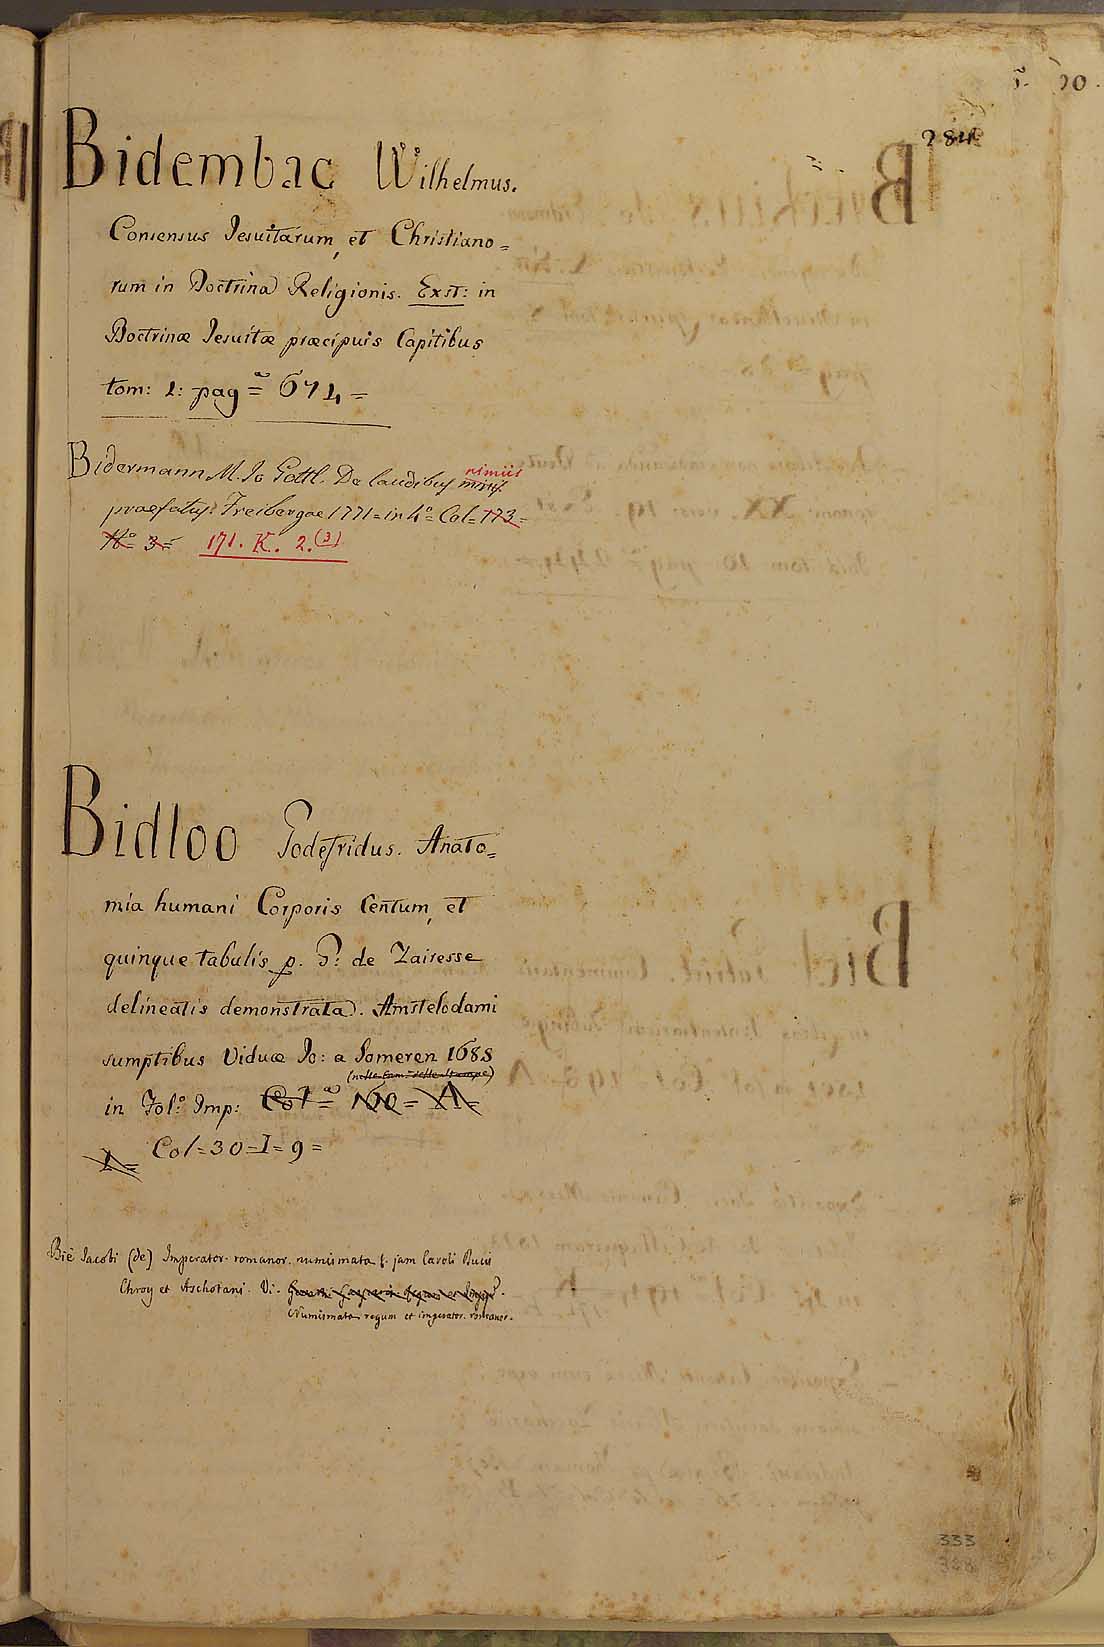 284
Bidembac Wilhelmus.
Consensus Iesuitarum, et Christiano=
rum in Doctrina Religionis. Exst: in
Doctrinæ Iesuitæ præcipuis Capitibus
tom: 1: pag.ª = 674 =
Bidermann M. Io Gottl. De laudibus nimiis
praefatus. Freibergae 1771 = in 4.º = Col = 173 =
N.º 3 = 171. K. 2. (3)
Bidloo Godefridus. Anato=
mia humani Corporis Centum, et
quinque tabulis p. G: de Lairesse
delineatis demonstrata. Amstelodami
sumptibus Viduæ Io: a Someren 1685
(nelle Cam: delle stampe)
in Fol.º Imp: Col.ª = 160 = A =
1 = Col = 30 = I = 9 =
Bie Iacobi (de) Imperator. romanor. numismata f. jam Caroli Ducis
Chroy et Aschotani. Vi.
Numismata regum et imperator. romanor.
333